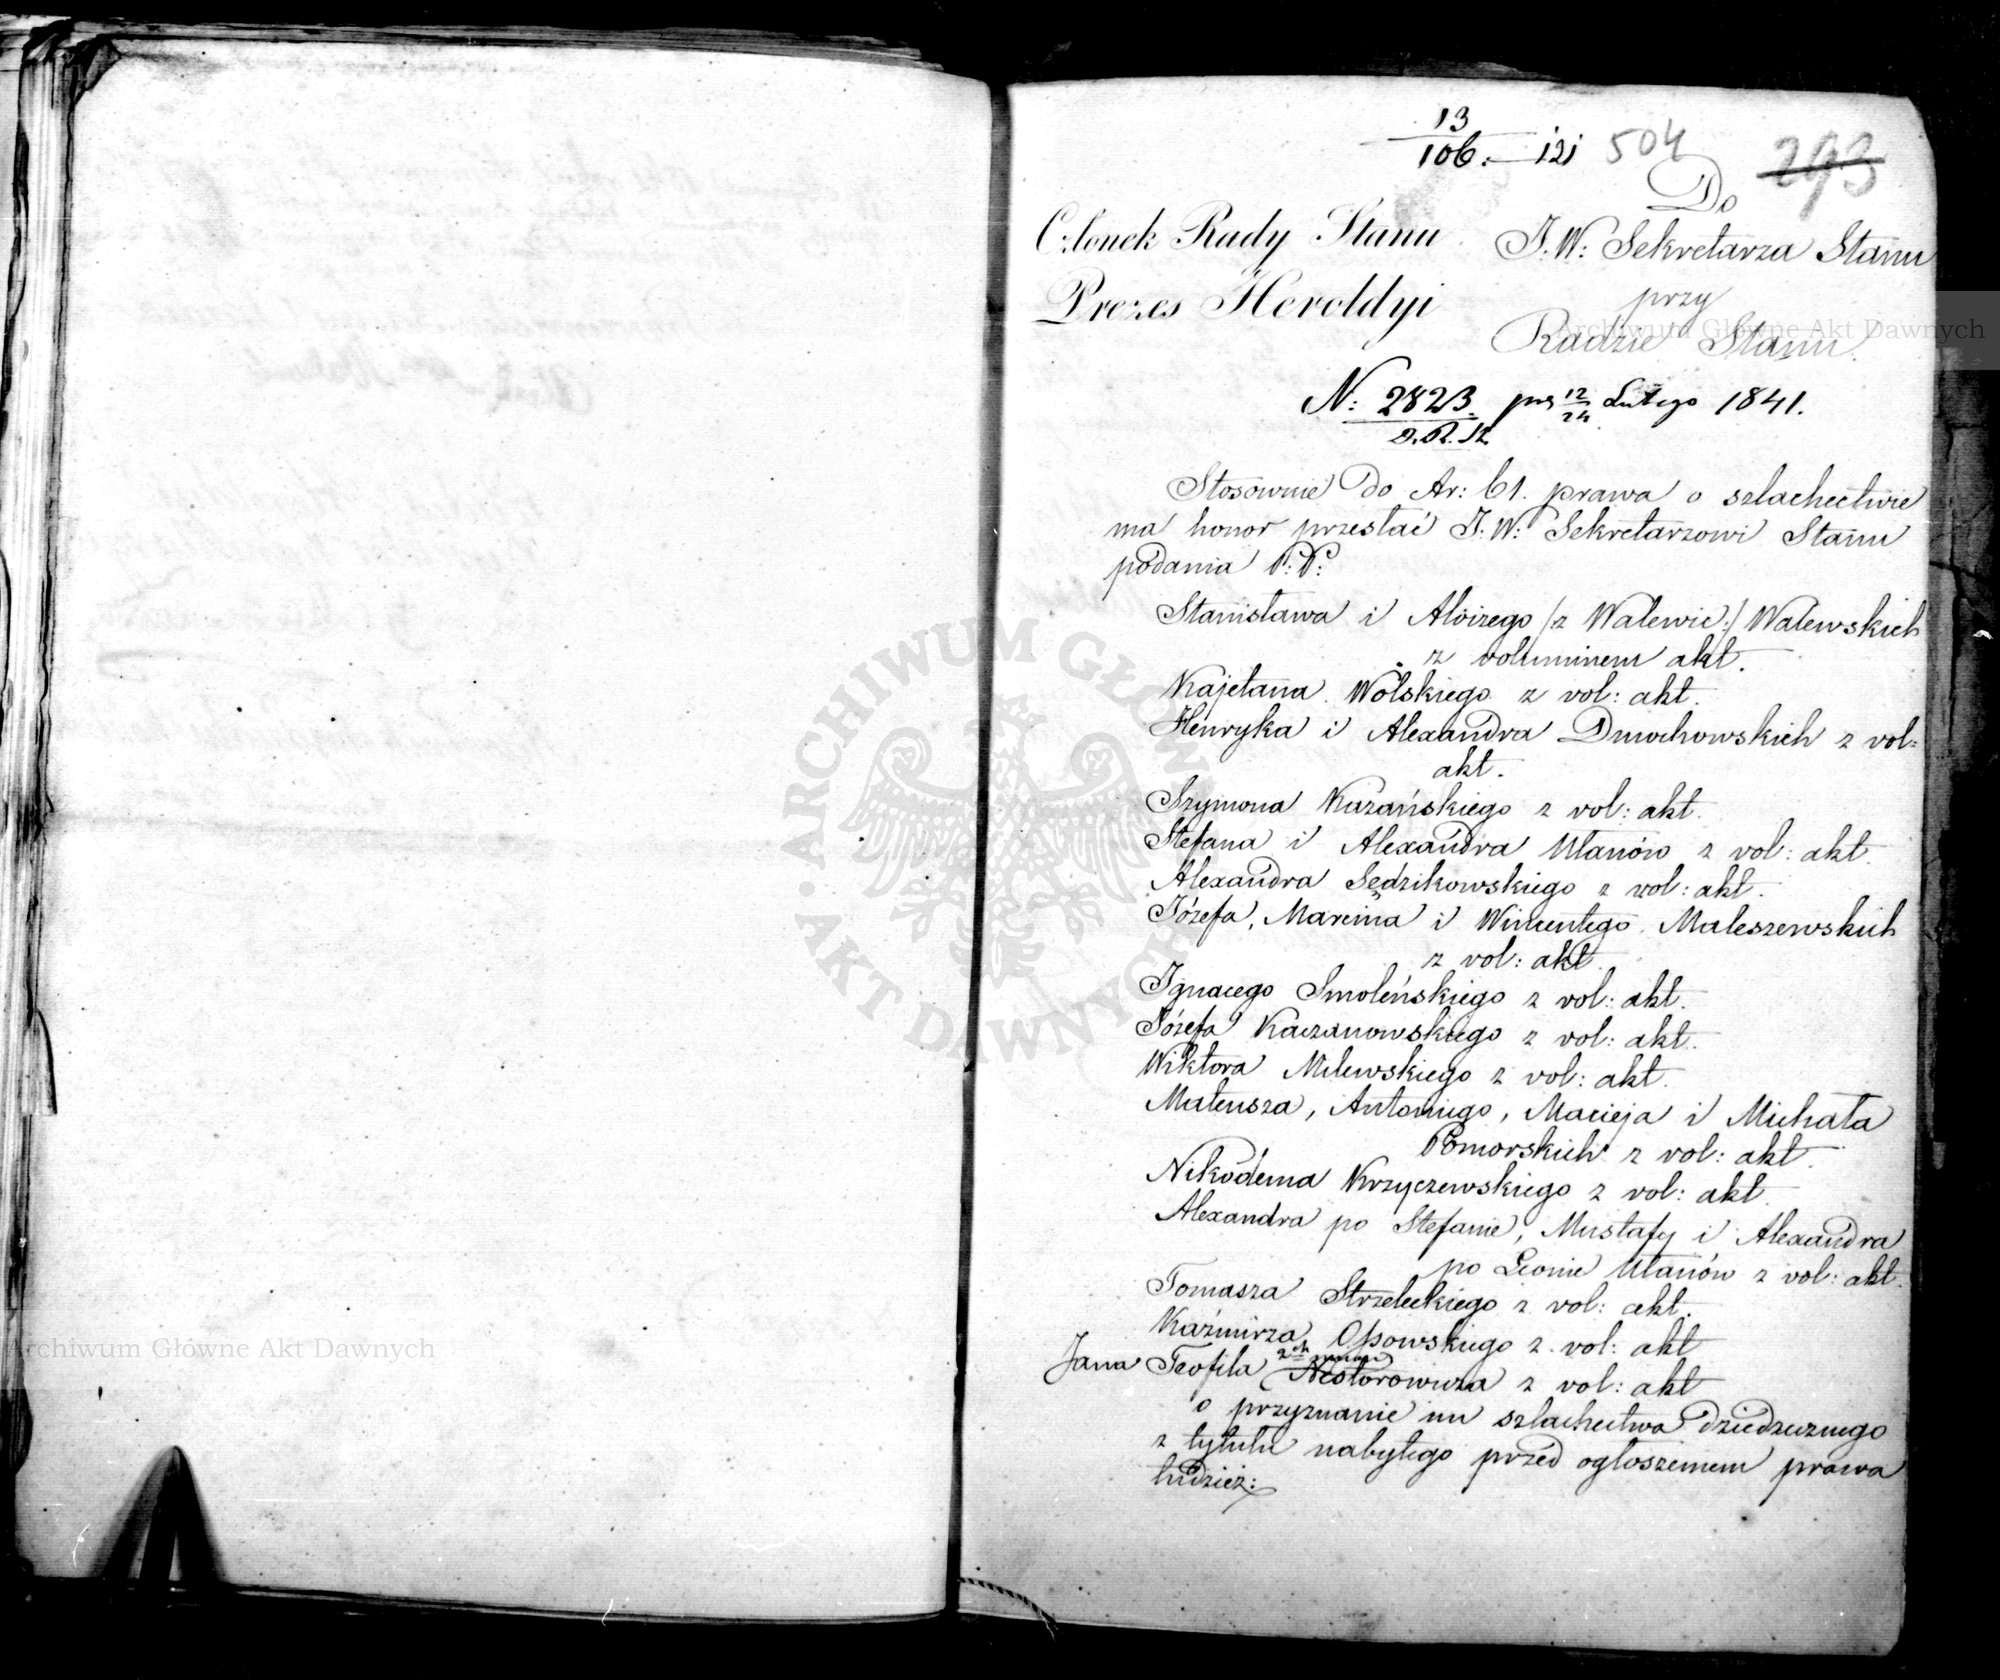 13
106. 121 504 293
Do
Członek Rady Stanu J.W: Sekretarza Stanu
Prezes Heroldyi przy
Radzie Stanu.
N: 2823. prs 12/24 Lutego 1841.
Stosownie do Ar: 61. prawa o szlachectwie
ma honor przesłać J.W: Sekretarzowi Stanu
podania P.P:
Stanisława i Aloizego /z Walewic:/ Walewskich
z voluminem akt.
Kajetana Wolskiego z vol: akt.
Henryka i Alexandra Dmochowskich z vol:
akt.
Szymona Kurzańskiego z vol: akt.
Stefana i Alexandra Ułanów z vol: akt.
Alexandra Sędzikowskiego z vol: akt.
Józefa, Marcina i Wincentego Maleszewskich
z vol: akt.
Ignacego Smoleńskiego z vol: akt.
Józefa Kaczanowskiego z vol: akt.
Wiktora Milewskiego z vol: akt.
Mateusza, Antoniego, Macieja i Michała
Pomorskich z vol: akt.
Nikodema Krzyczewskiego z vol: akt.
Alexandra po Stefanie, Mustafy i Alexandra
po Leonie Ułanów z vol: akt.
Tomasza Strzeleckiego z vol: akt.
Kaźmirza z vol: akt
Jana Teofila 2ch imion Nestorowicza z vol: akt
o przyznanie im szlachectwa dziedzicznego
z tytułu nabytego przed ogłoszeniem prawa
tudzież:
Archiwum Główne Akt Dawnych
ARCHIWUM GŁÓWNE AKT DAWNYCH
Archiwum Główne Akt Dawnych